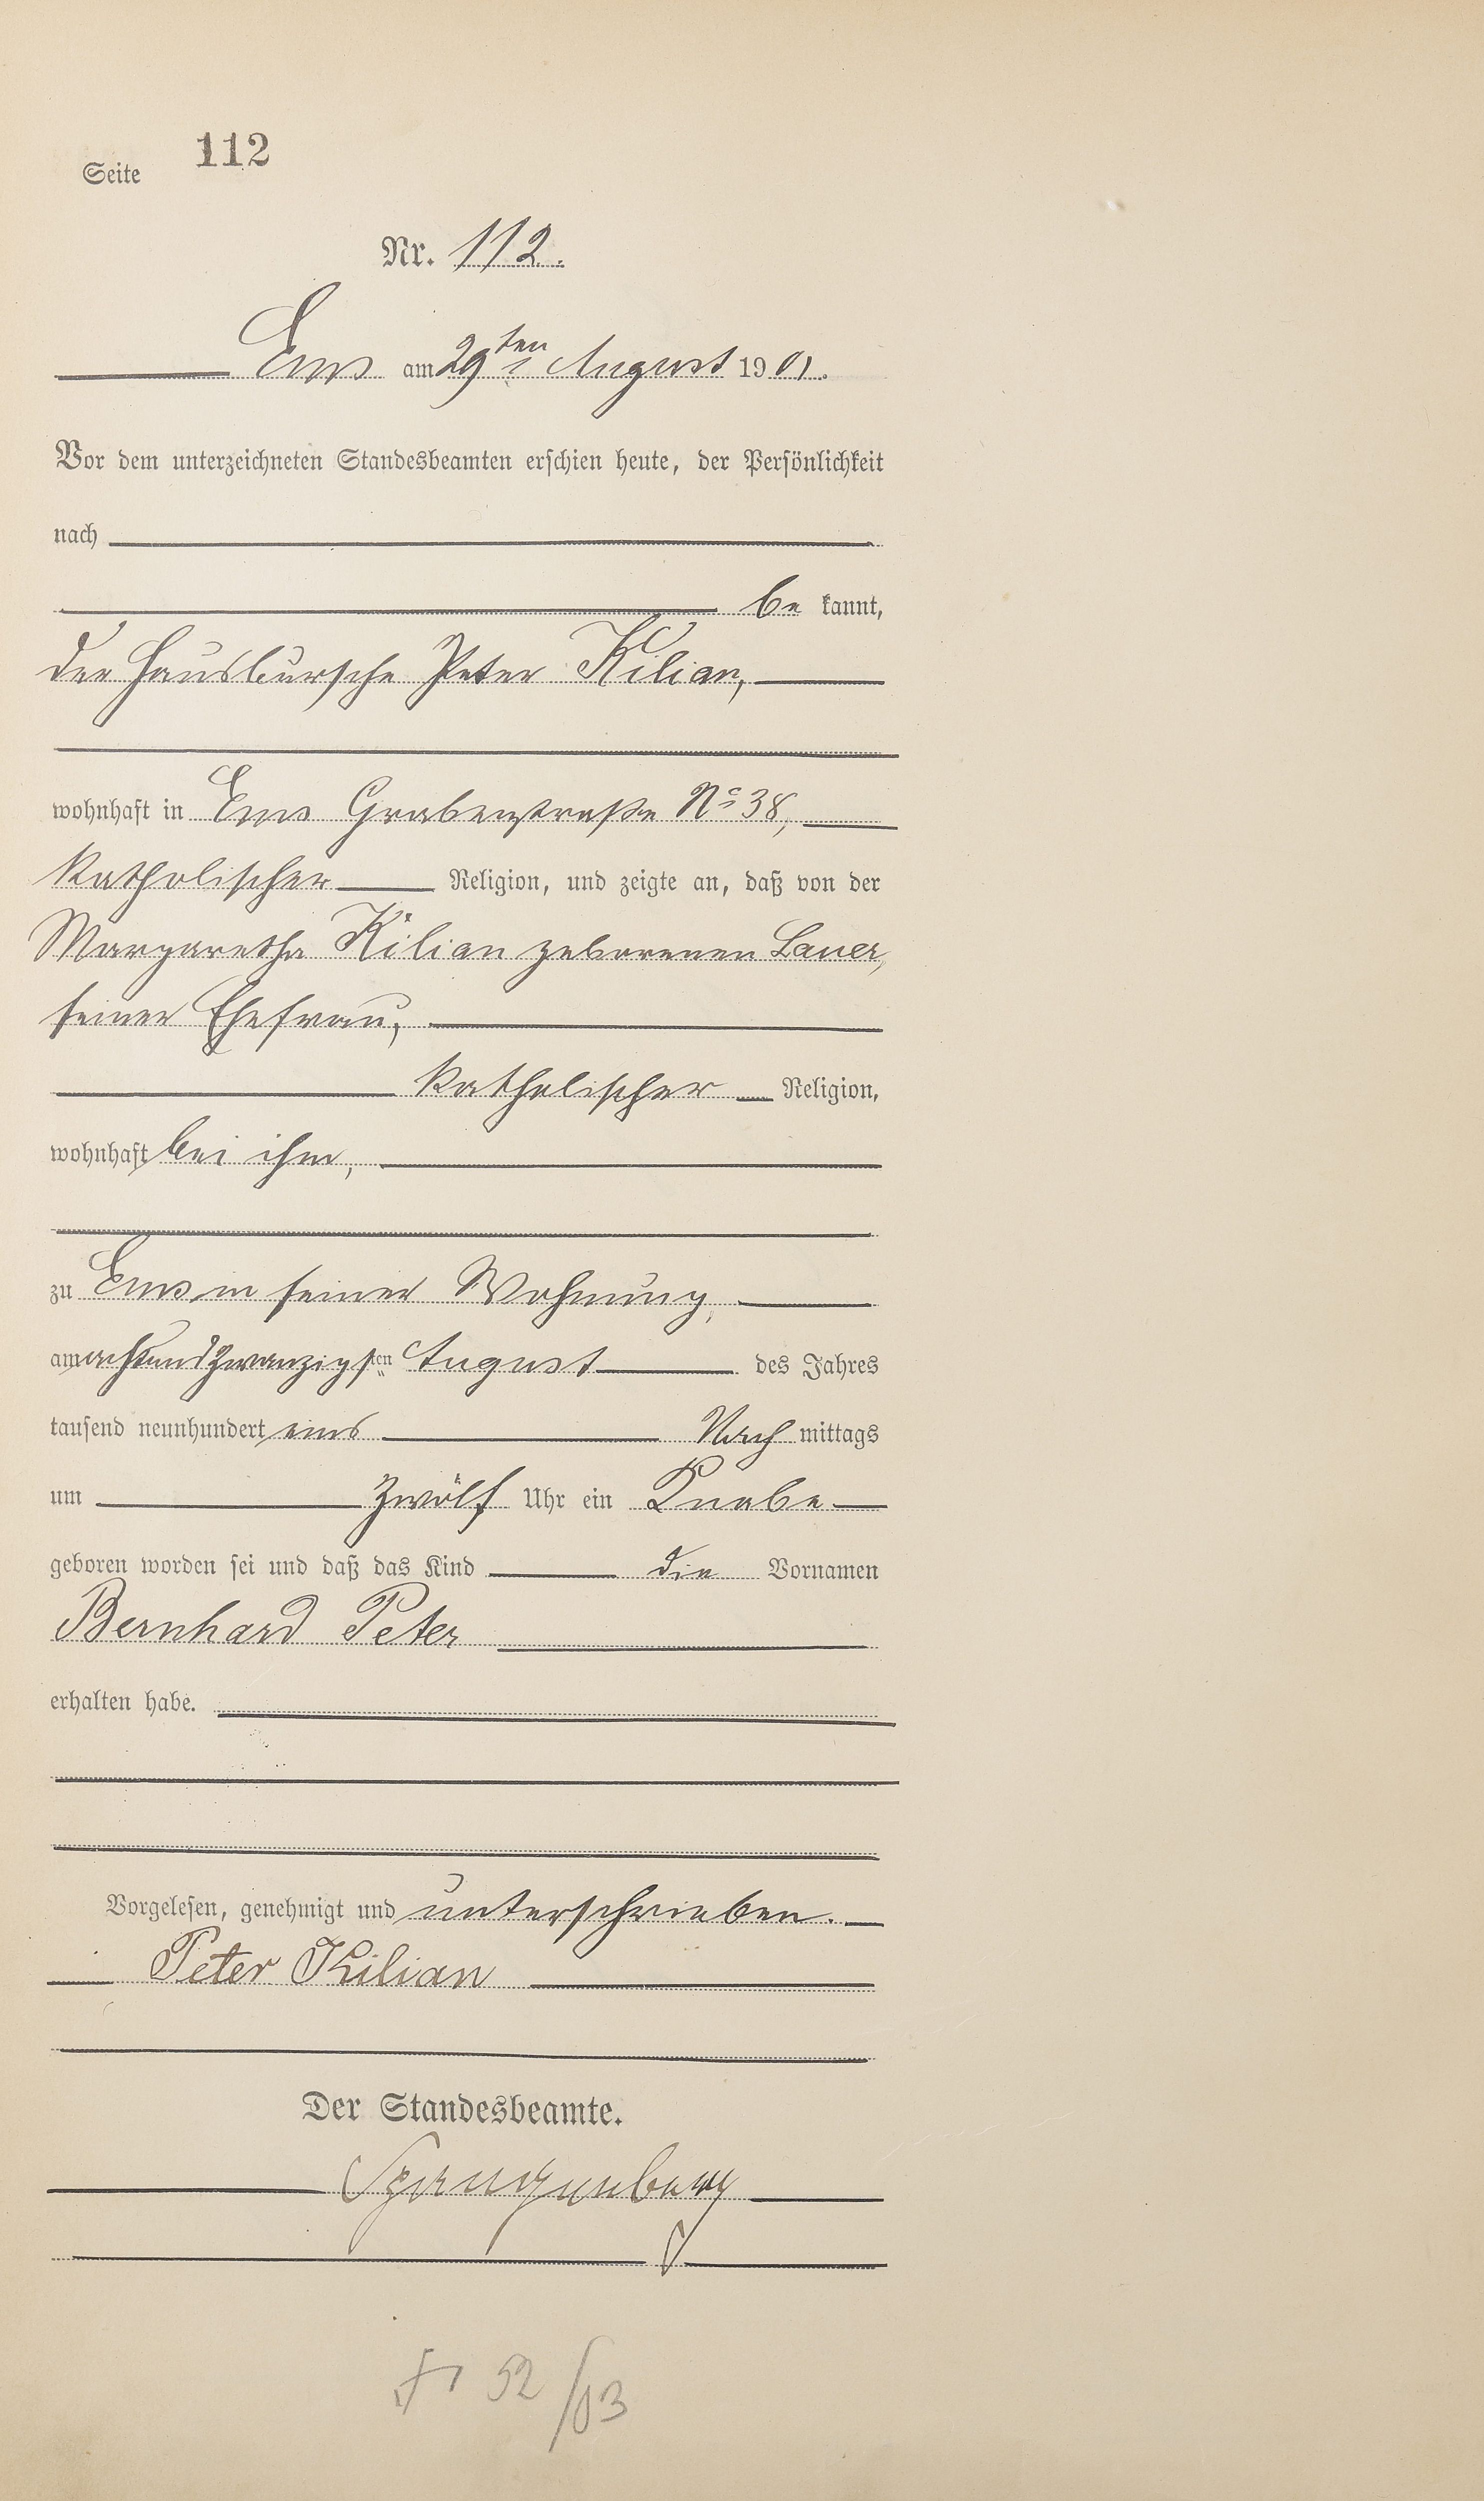 Seite 112
Nr. 112.
Ems am 29ten August 1901.
Vor dem unterzeichneten Standesbeamten erschien heute, der Persönlichkeit
nach
bekannt,
der Hausbursche Peter Kilian,
wohnhaft in Ems Grabenstraße No 38,
katholischer Religion, und zeigte an, daß von der
Margaretha Kilian geborenen Lauer,
seiner Ehefrau,
katholischer Religion,
wohnhaft bei ihm,
zu Ems in seiner Wohnung,
am achtundzwanzigsten August des Jahres
tausend neunhundert eins Nachmittags
um zwölf Uhr ein Knabe
geboren worden sei und daß das Kind die Vornamen
Bernhard Peter
erhalten habe.
Vorgelesen, genehmigt und unterschrieben.
Peter Kilian
Der Standesbeamte.
Spangenberg
52/03